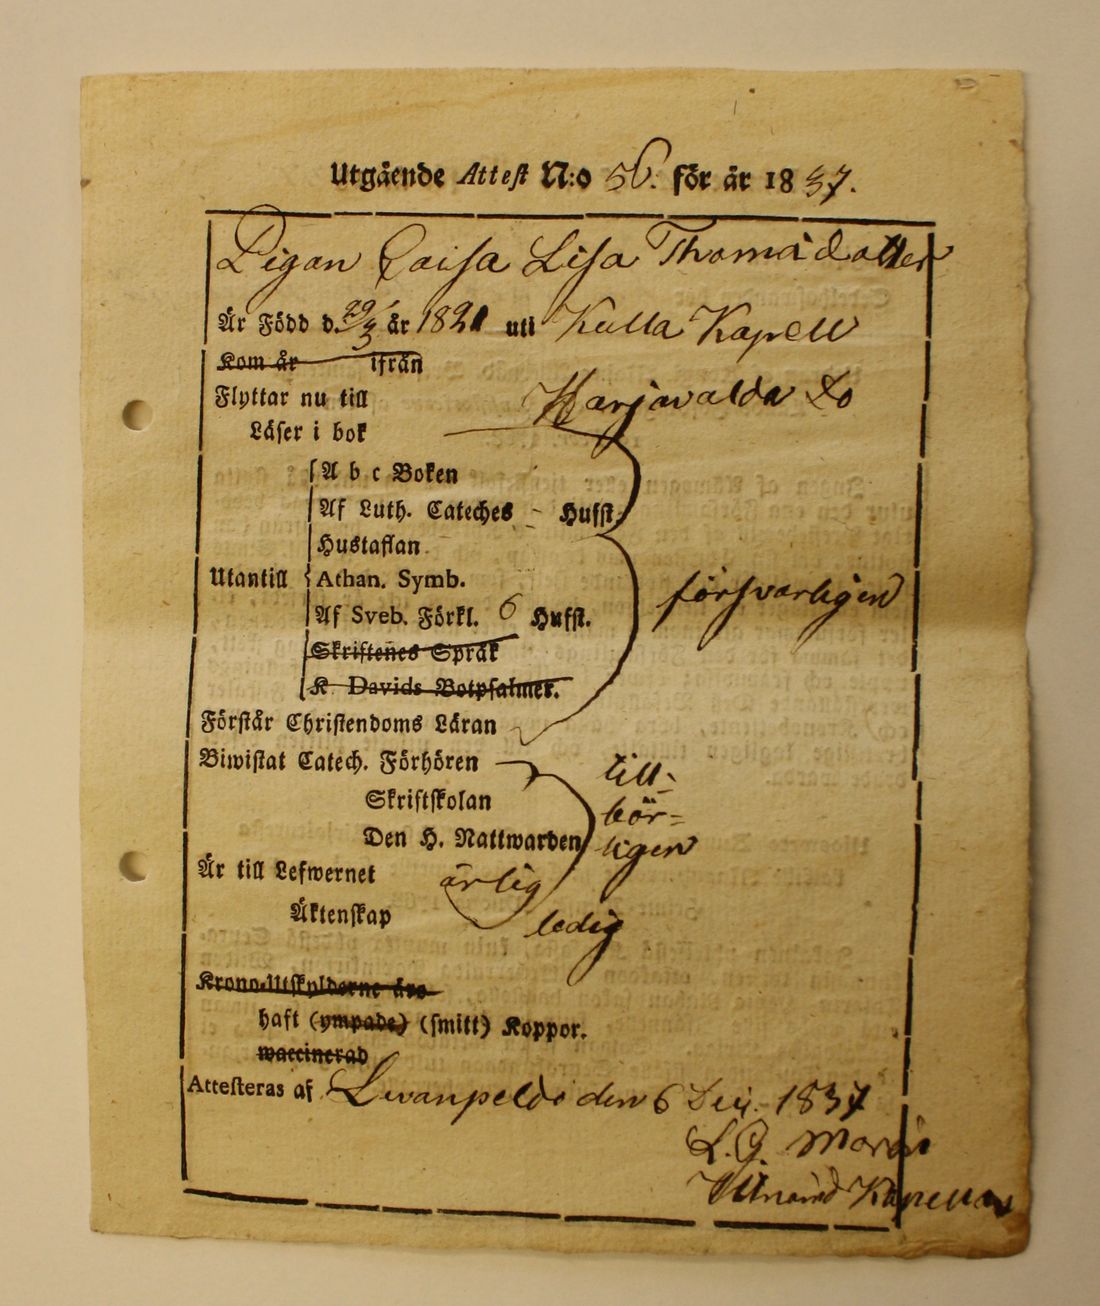 Utgående Attest N:o 56. för år 1837.
Pigan Caisa Lisa Thomädotter
Är Född d. 29/3 år 1821 uti Kulla Kapell
Kom år ifrån
Flyttar nu till Harjavalda
Läser i bok
A b c Boken
Af Luth. Cateches - Hufst.
Hustaflan
Utantill Athan. Symb. försvarligen
Af Sveb. Förkl. 6 Hufst.
Skriftenes Språk
K. Davids Botpsalmer.
Förstår Christendoms Läran
Biwistat Catech. Förhören till-
Skriftskolan bör-
Den H. Nattwarden ligen
Är till Lefwernet ärlig
Äktenskap ledig
Krono-Utskylderne äro
haft (ympade) (smitt) Koppor.
waccinerad
Attesteras af Levanpeldo den 6 Dec. 1837
L. G.
Kapellan